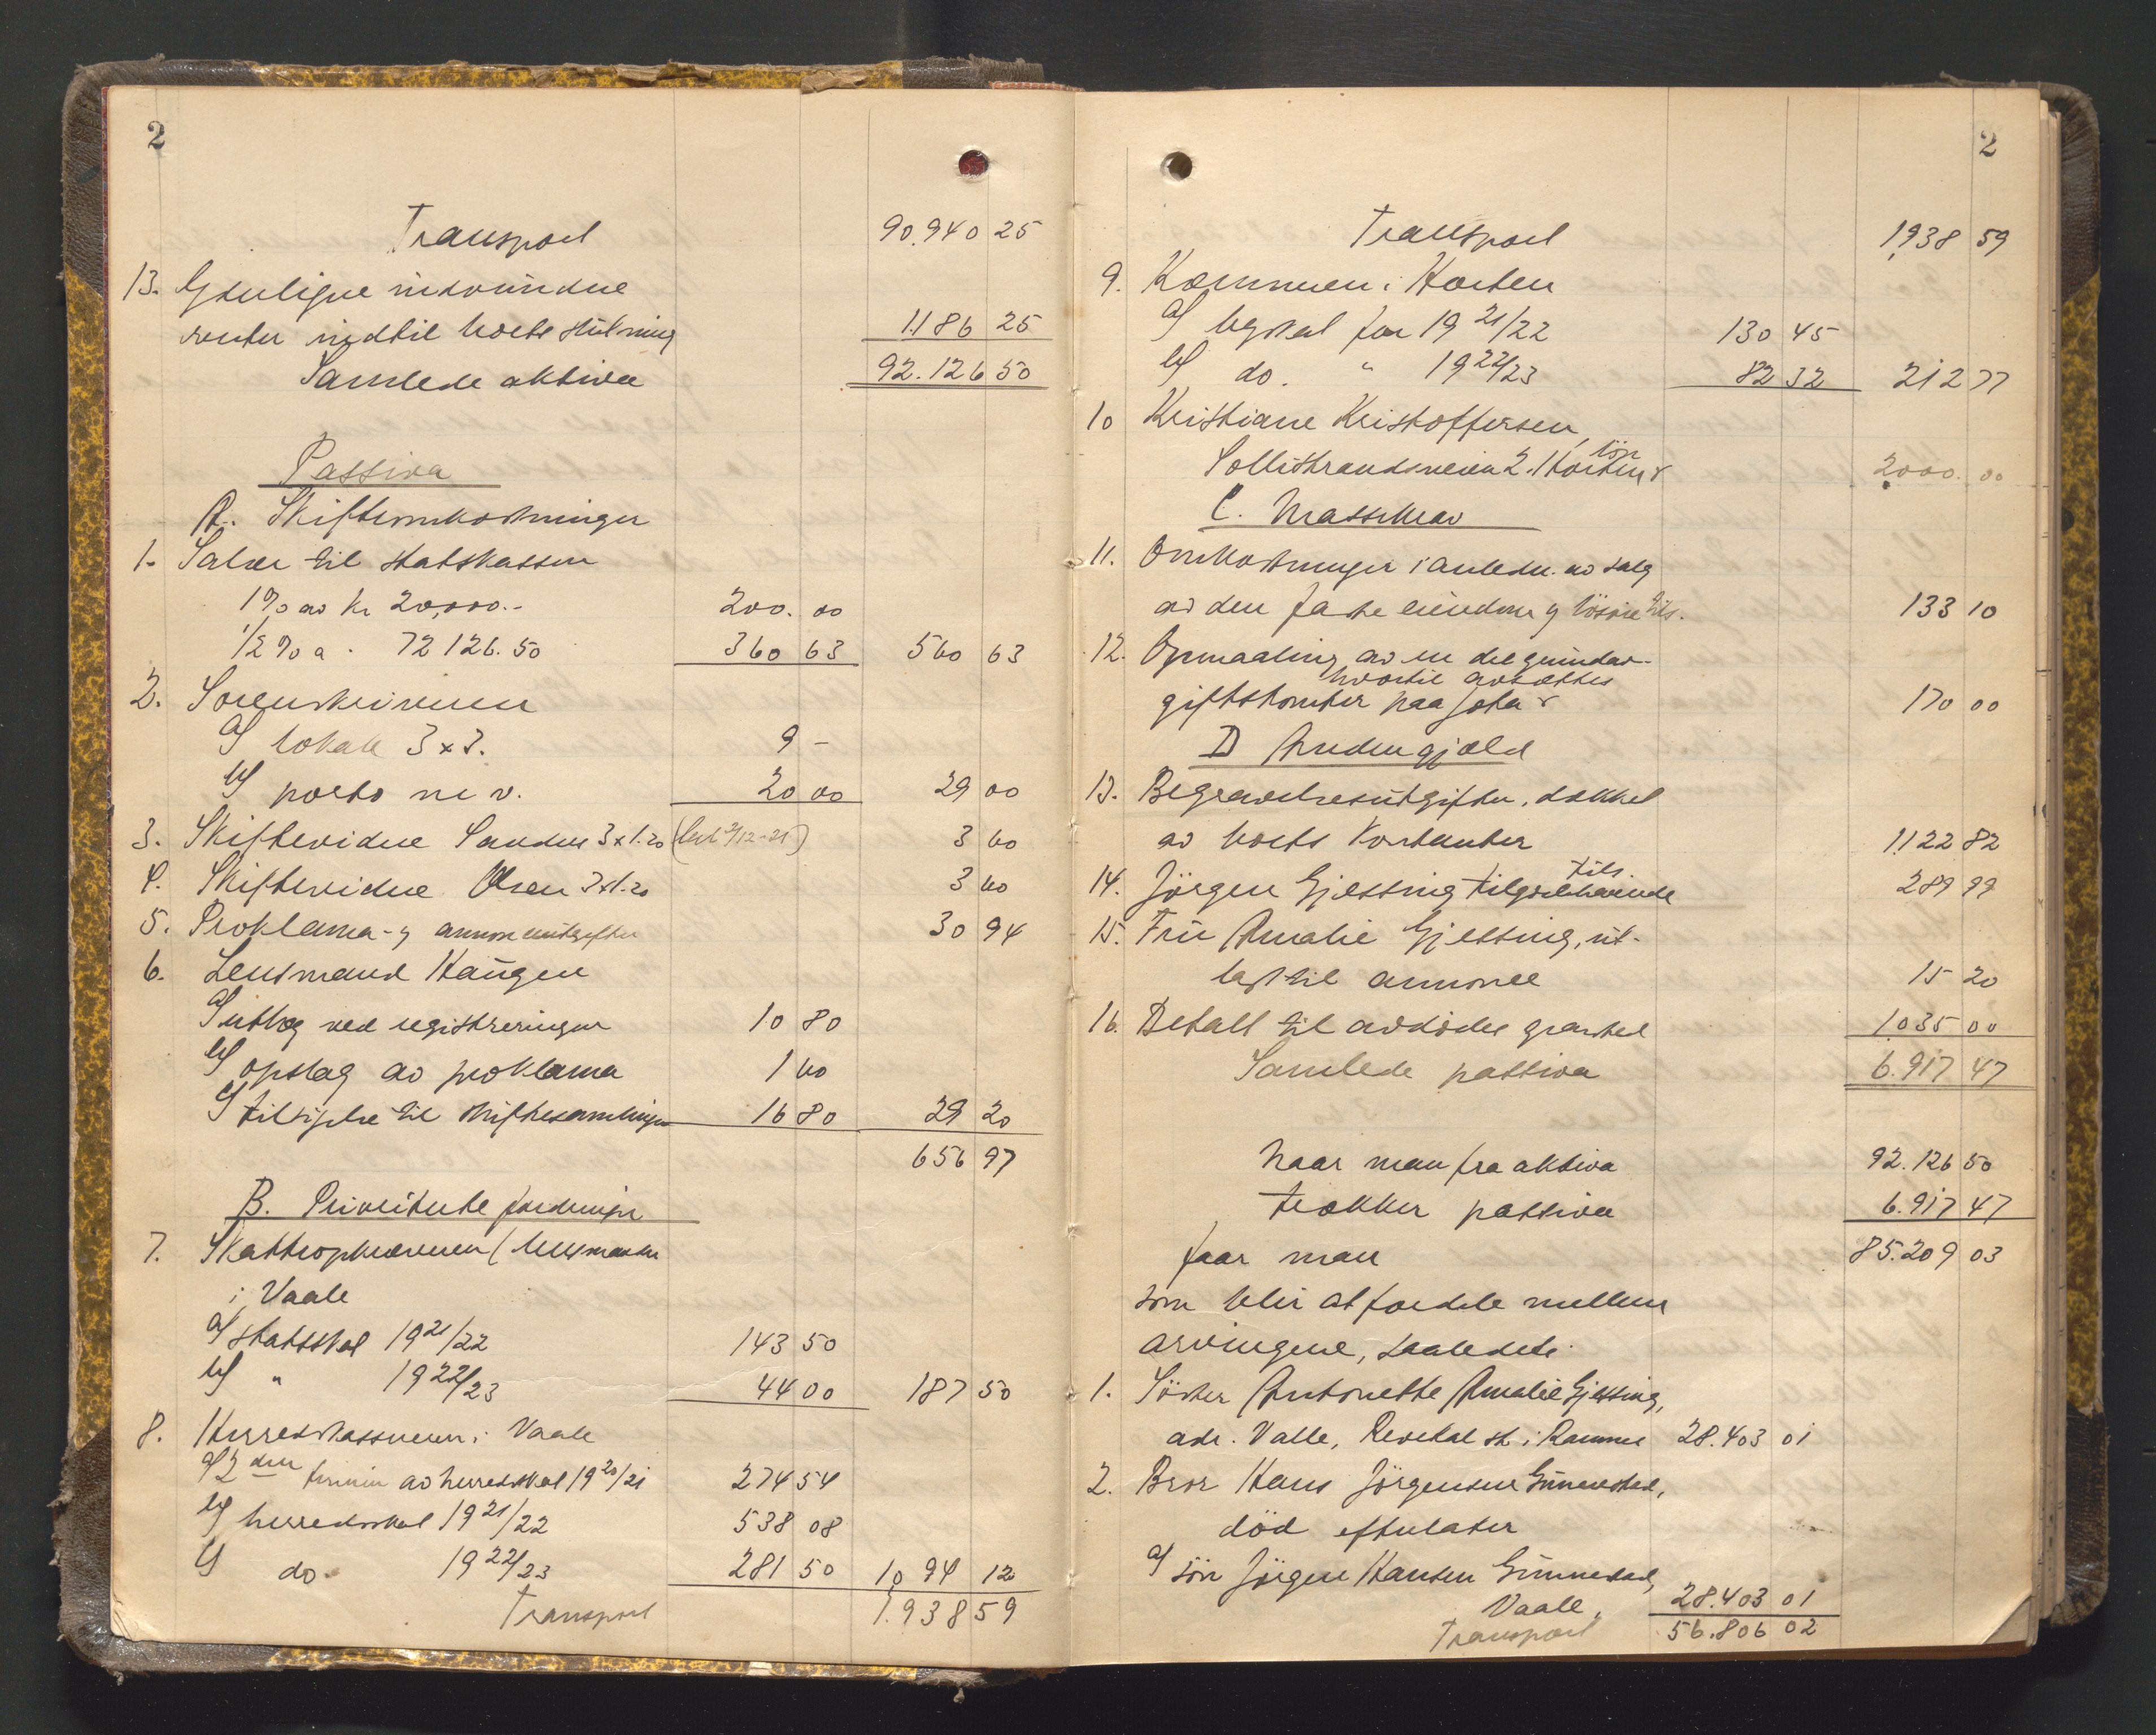 2
Transport 90.940 25
13. Ytterligere indvundne
renter indtil boets slutning 1.186 25
Samlede aktiva 92.126 50
Passiva
A. Skifteomkostninger
1. Salær til statskassen
1% av kr 20,000.- 200.00
1/2% a. 72126.50 360 63 560 63
2. Sorenskriveren
a/ lokale 3 x 3. 9 -
b/ porto m v. 20 00 29 00
3. Skiftevidne Sanden 3x1.20 3 60
4. Skiftevidne Olsen 3x1.20 3 60
5. Proklama- og annonceutgifter 30 94
6. Lensmand Haugen
a/ utlæg ved registreringen 10 80
b/ opslag av proklama 1 60
c/ tilsigelse til skiftesamlingen 16 80 29 20
656 97
B. Privilerte fordringer
7. Skatteopkræveren (lensmanden
i Vaale
a/ statsskat 19 21/22 143 50
b/ " 19 22/23 44 00 187 50
8. Herredskassereren i Vaale
a/ 2den termin av herredsskat 19 20/21 274 54
b/ herredsskat 19 21/22 538 08
c/ do. 19 22/23 281 50 1094 12
Transport 1.938 59
2
Transport 1.938 59
9. Kæmneren i Horten
a/ byskat for 19 21/22 130 45
b/ do. " 19 22/23 82 32 212 77
10 Kristiane Kristoffersen,
Sollistrandsveien 2. Horten, løn 2000.00
C. Massekrav
11. Omkostninger i anledn. av salg
av den faste eiendom og løsøre tils. 133 10
12. Opmaaling av en del grundav-
hvortil avsættes
gifttomter paa Jota 170 00
D Anden gjæld
13. Begravelsesutgifter, dækket
av boets kontanter 1.122 82
14. Jörgen Gjessing tilgodehavende tils. 289 99
15. Fru Amalie Gjessing, ut-
læg til annonce 15 20
16. Betalt til avdödes gravsted 1.035 00
Samlede passiva 6.917 47
Naar man fra aktiva 92.126 50
trækker passiva 6.917 47
faar man 85.209 03
som blir at fordele mellem
arvingene, saaledes:
1. Söster Antonette Amalie Gjessing,
adr. Valle, Revetal st. i Ramnes 28.403 01
2. Bror Hans Jörgensen Gunnestad,
död efterlater
a/ sön Jörgen Hansen Gunnestad,
Vaale, 28.403 01
Transport 56.806 02